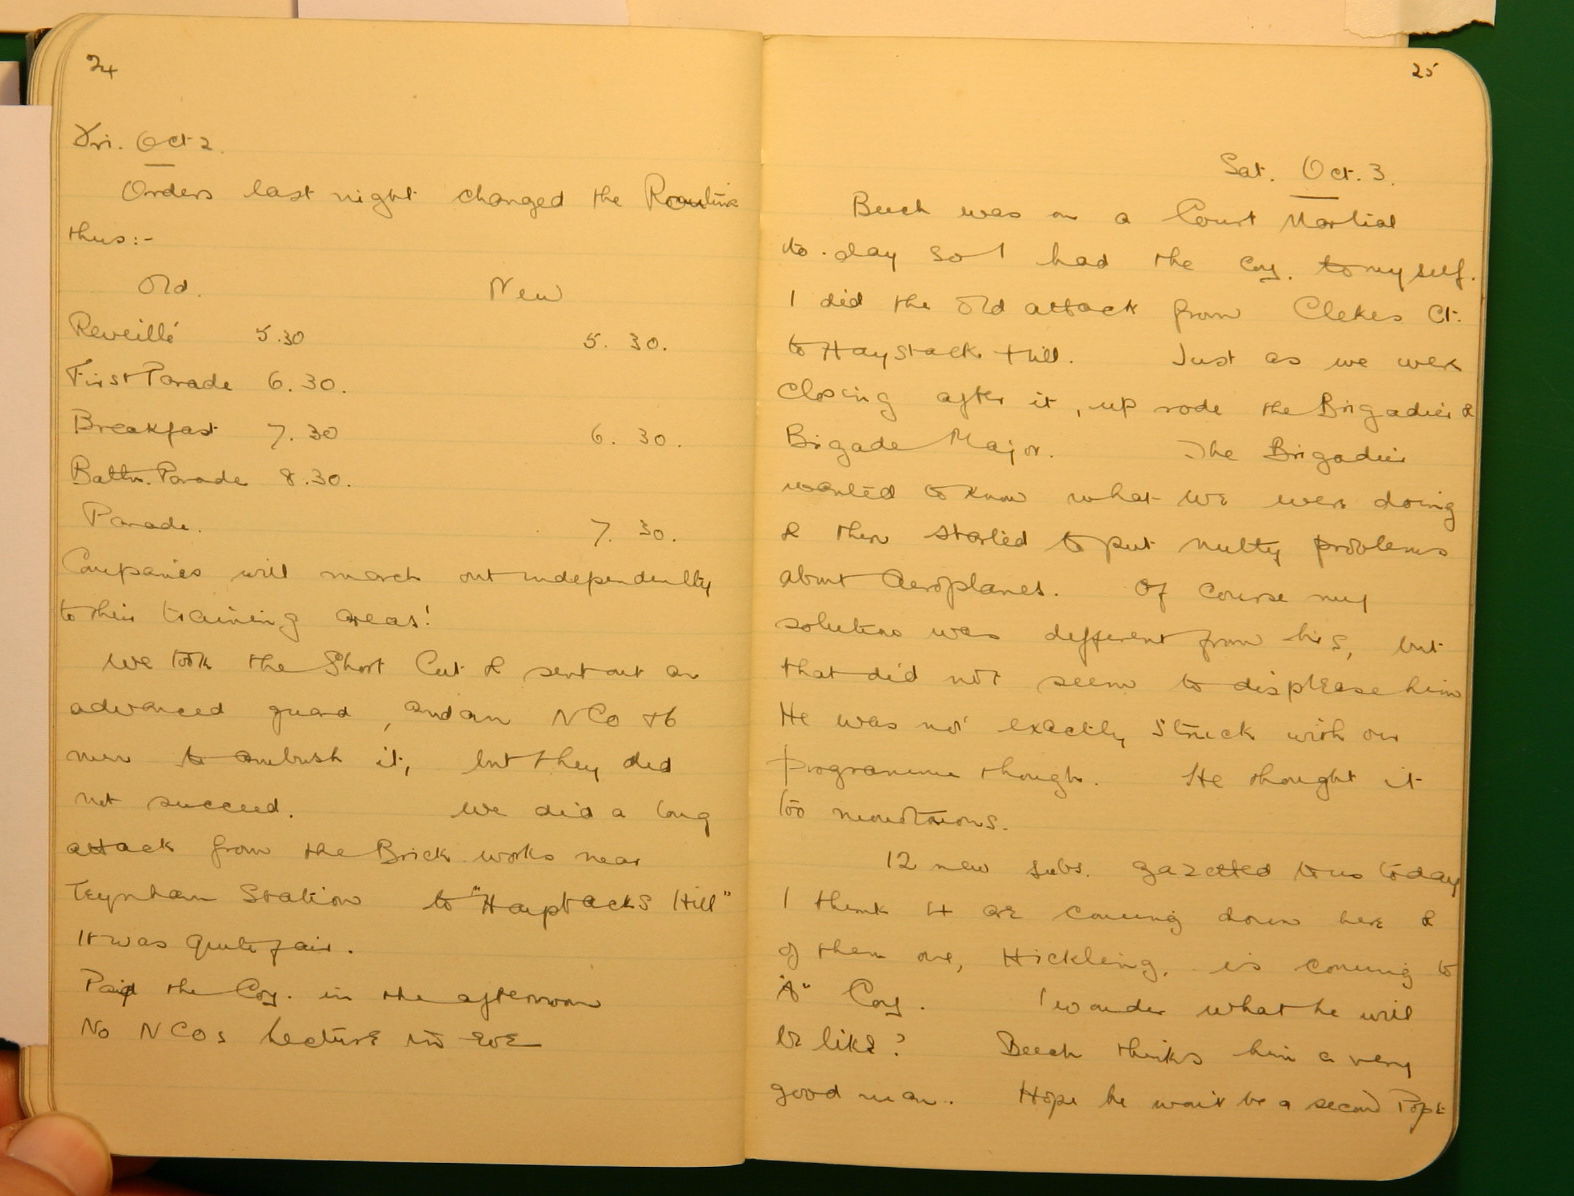 24
Fri. Oct 2.
Orders last night changed the Routine
thus:-
Old. New
Reveillé 5.30 5. 30.
First Parade 6.30.
Breakfast 7.30 6. 30.
Battn. Parade 8.30.
Parade. 7. 30.
Companies will march out independently
to their training areas!
We took the Short Cut & sent out an
advanced guard, and an NCO & 6
men to ambush it, but they did
not succeed. We did a long
attack from the Brick works near
Teynham Station to "Haystacks Hill"
It was quite fair.
Paid the Coy. in the afternoon
No NCOs Lecture in eve
25
Sat. Oct. 3.
Beech was on a Court Martial
to-day so I had the Coy. to myself.
I did the old attack from Clekes Ct.
to Haystack Hill. Just as we were
closing after it, up rode the Brigadier &
Brigade Major. The Brigadier
wanted to know what we were doing
& then started to put nutty problems
about Aeroplanes. Of course my
solution was different from his, but
that did not seem to displease him
He was not exactly struck with our
programme though. He thought it
too monotonous.
12 new subs. gazetted to us today
I think 4 are coming down here &
of them one, Hickling, is coming to
"A" Coy. I wonder what he will
be like? Beech thinks him a very
good man. Hope he won't be a second Pope